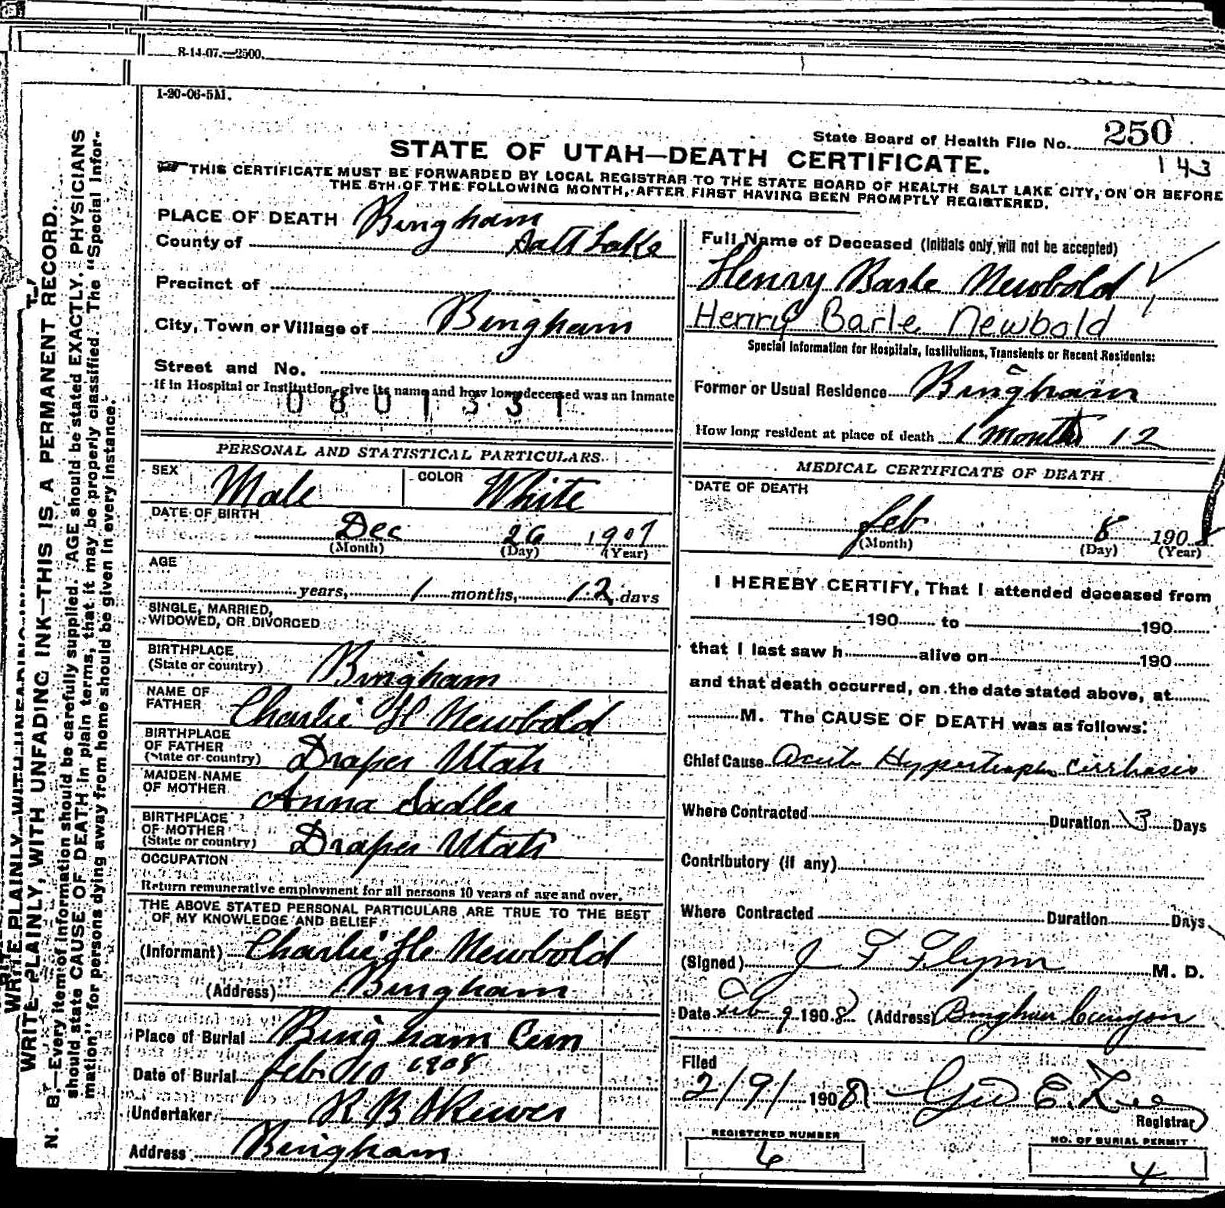 8-14-07.—2500.
1-20-06-5M.
State Board of Health File No. 250
143
STATE OF UTAH—DEATH CERTIFICATE.
THIS CERTIFICATE MUST BE FORWARDED BY LOCAL REGISTRAR TO THE STATE BOARD OF HEALTH SALT LAKE CITY, ON OR BEFORE
THE 5TH OF THE FOLLOWING MONTH, AFTER FIRST HAVING BEEN PROMPTLY REGISTERED.
PLACE OF DEATH Bingham
County of Salt Lake
Precinct of
City, Town or Village of Bingham
Street and No.
If in Hospital or Institution, give its name and how long deceased was an inmate
0801331
PERSONAL AND STATISTICAL PARTICULARS.
SEX Male COLOR White
DATE OF BIRTH Dec 26 1907
(Month) (Day) (Year)
AGE
years, 1 months, 12 days
SINGLE, MARRIED,
WIDOWED, OR DIVORCED
BIRTHPLACE
(State or country) Bingham
NAME OF
FATHER Charlie H Newbold
BIRTHPLACE
OF FATHER
(State or country) Draper Utah
MAIDEN NAME
OF MOTHER Anna Sadler
BIRTHPLACE
OF MOTHER
(State or country) Draper Utah
OCCUPATION
Return remunerative employment for all persons 10 years of age and over.
THE ABOVE STATED PERSONAL PARTICULARS ARE TRUE TO THE BEST
OF MY KNOWLEDGE AND BELIEF
(Informant) Charlie H Newbold
(Address) Bingham
Place of Burial Bingham Cem
Date of Burial Feb 10 1908
Undertaker R B Skewes
Address Bingham
Full Name of Deceased (Initials only will not be accepted)
Henry Barle Newbold
Henry Barle Newbold
Special Information for Hospitals, Institutions, Transients or Recent Residents:
Former or Usual Residence Bingham
How long resident at place of death 1 month 12
MEDICAL CERTIFICATE OF DEATH
DATE OF DEATH
Feb 8 1908
(Month) (Day) (Year)
I HEREBY CERTIFY, That I attended deceased from
190 to 190
that I last saw h alive on 190
and that death occurred, on the date stated above, at
M. The CAUSE OF DEATH was as follows:
Chief Cause Acute Hypertrophic Cirrhosis
Where Contracted Duration 3 Days
Contributory (if any)
Where Contracted Duration Days
(Signed) J F Flynn M. D.
Date Feb 9 1908 (Address) Bingham Canyon
Filed
2/9/ 1908 Geo E.
Registrar
REGISTERED NUMBER
6
NO. OF BURIAL PERMIT
4
WRITE PLAINLY, WITH UNFADING INK—THIS IS A PERMANENT RECORD.
N. B. Every item of information should be carefully supplied. AGE should be stated EXACTLY. PHYSICIANS
should state CAUSE OF DEATH in plain terms, that it may be properly classified. The "Special Infor-
mation" for persons dying away from home should be given in every instance.